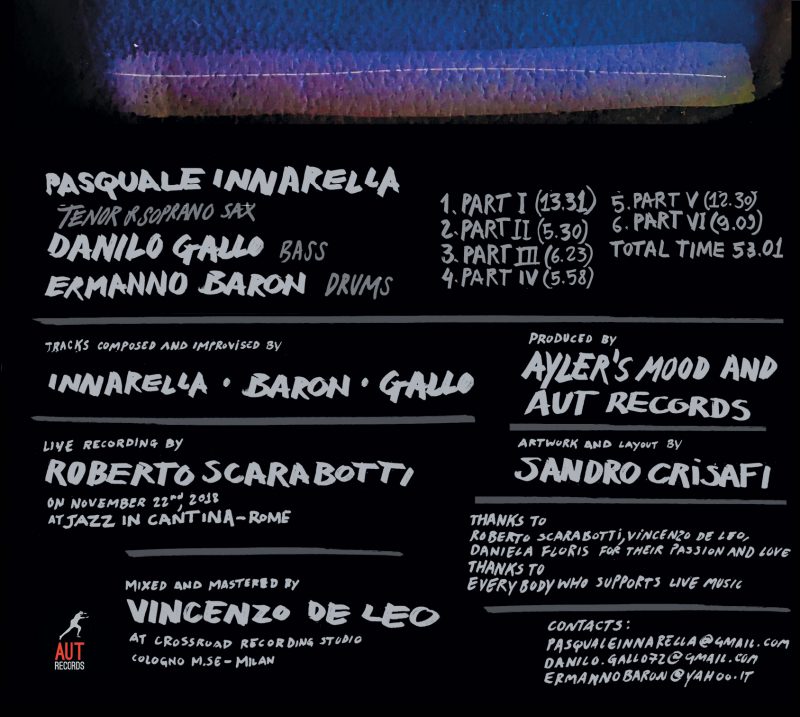 PASQUALE INNARELLA
TENOR & SOPRANO SAX
DANILO GALLO BASS
ERMANNO BARON DRUMS
1. PART I (13.31)
2. PART II (5.30)
3. PART III (6.23)
4. PART IV (5.58)
5. PART V (12.30)
6. PART VI (9.09)
TOTAL TIME 53.01
TRACKS COMPOSED AND IMPROVISED BY
INNARELLA • BARON • GALLO
PRODUCED BY
AYLER'S MOOD AND
AUT RECORDS
LIVE RECORDING BY
ROBERTO SCARABOTTI
ON NOVEMBER 22nd, 2018
AT JAZZ IN CANTINA-ROME
ARTWORK AND LAYOUT BY
SANDRO CRISAFI
MIXED AND MASTERED BY
VINCENZO DE LEO
AT CROSSROAD RECORDING STUDIO
COLOGNO M.SE - MILAN
THANKS TO
ROBERTO SCARABOTTI, VINCENZO DE LEO,
DANIELA FLORIS FOR THEIR PASSION AND LOVE
THANKS TO
EVERYBODY WHO SUPPORTS LIVE MUSIC
CONTACTS:
PASQUALEINNARELLA@GMAIL.COM
DANILO.GALLO72@GMAIL.COM
ERMANNOBARON@YAHOO.IT
AUT
RECORDS